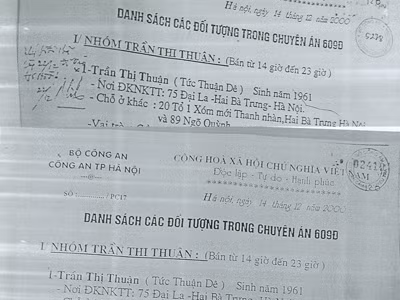 Hà nội, ngày 14 tháng 12 năm 2000
DANH SÁCH CÁC ĐỐI TƯỢNG TRONG CHUYÊN ÁN 609Đ
I/ NHÓM TRẦN THỊ THUẬN : (Bán từ 14 giờ đến 23 giờ)
1-Trần Thị Thuận ( Tức Thuận Dê ) Sinh năm 1961
- Nơi ĐKNKTT: 75 Đại La -Hai Bà Trưng- Hà Nội.
- Chỗ ở khác : 20 Tổ 1 Xóm mới Thanh nhàn,Hai Bà Trưng Hà Nội
và 89 Ngô Quỳnh
-Vai trò
BỘ CÔNG AN
CÔNG AN TP HÀ NỘI
CỘNG HOÀ XÃ HỘI CHỦ NGHĨA VIỆT NAM
Độc lập - Tự do - Hạnh phúc
SỐ ............/PC17
Hà nội, ngày 14 tháng 12 năm 2000
DANH SÁCH CÁC ĐỐI TƯỢNG TRONG CHUYÊN ÁN 609Đ
I/ NHÓM TRẦN THỊ THUẬN : (Bán từ 14 giờ đến 23 giờ)
1-Trần Thị Thuận ( Tức Thuận Dê ) Sinh năm 1961
- Nơi ĐKNKTT: 75 Đại La -Hai Bà Trưng- Hà Nội.